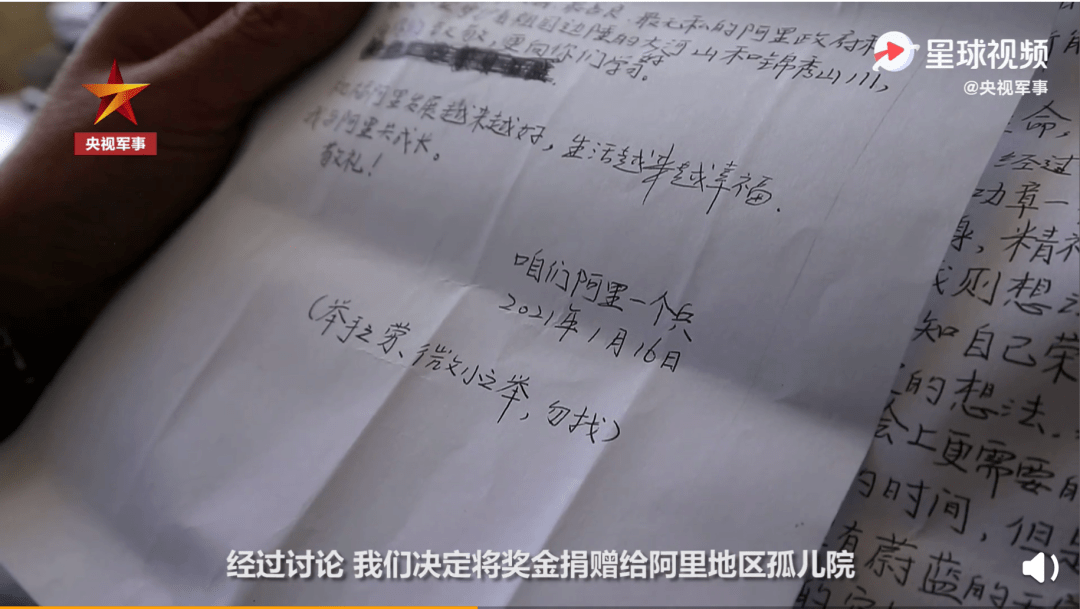 星球视频
@央视军事
央视军事
最无私的阿里政府和
祖国边陲的大河山和锦秀山川,
致敬,更向你们学习。
阿里发展越来越好,生活越来越幸福.
我与阿里共成长。
敬礼!
咱们阿里一个兵
2021年1月16日
(举手之劳、微小之举,勿找)
命,
经过
功章一
,精神
则想
知自己荣
的想法.
会上更需要的
的时间,但
有蔚蓝的
经过讨论 我们决定将奖金捐赠给阿里地区孤儿院